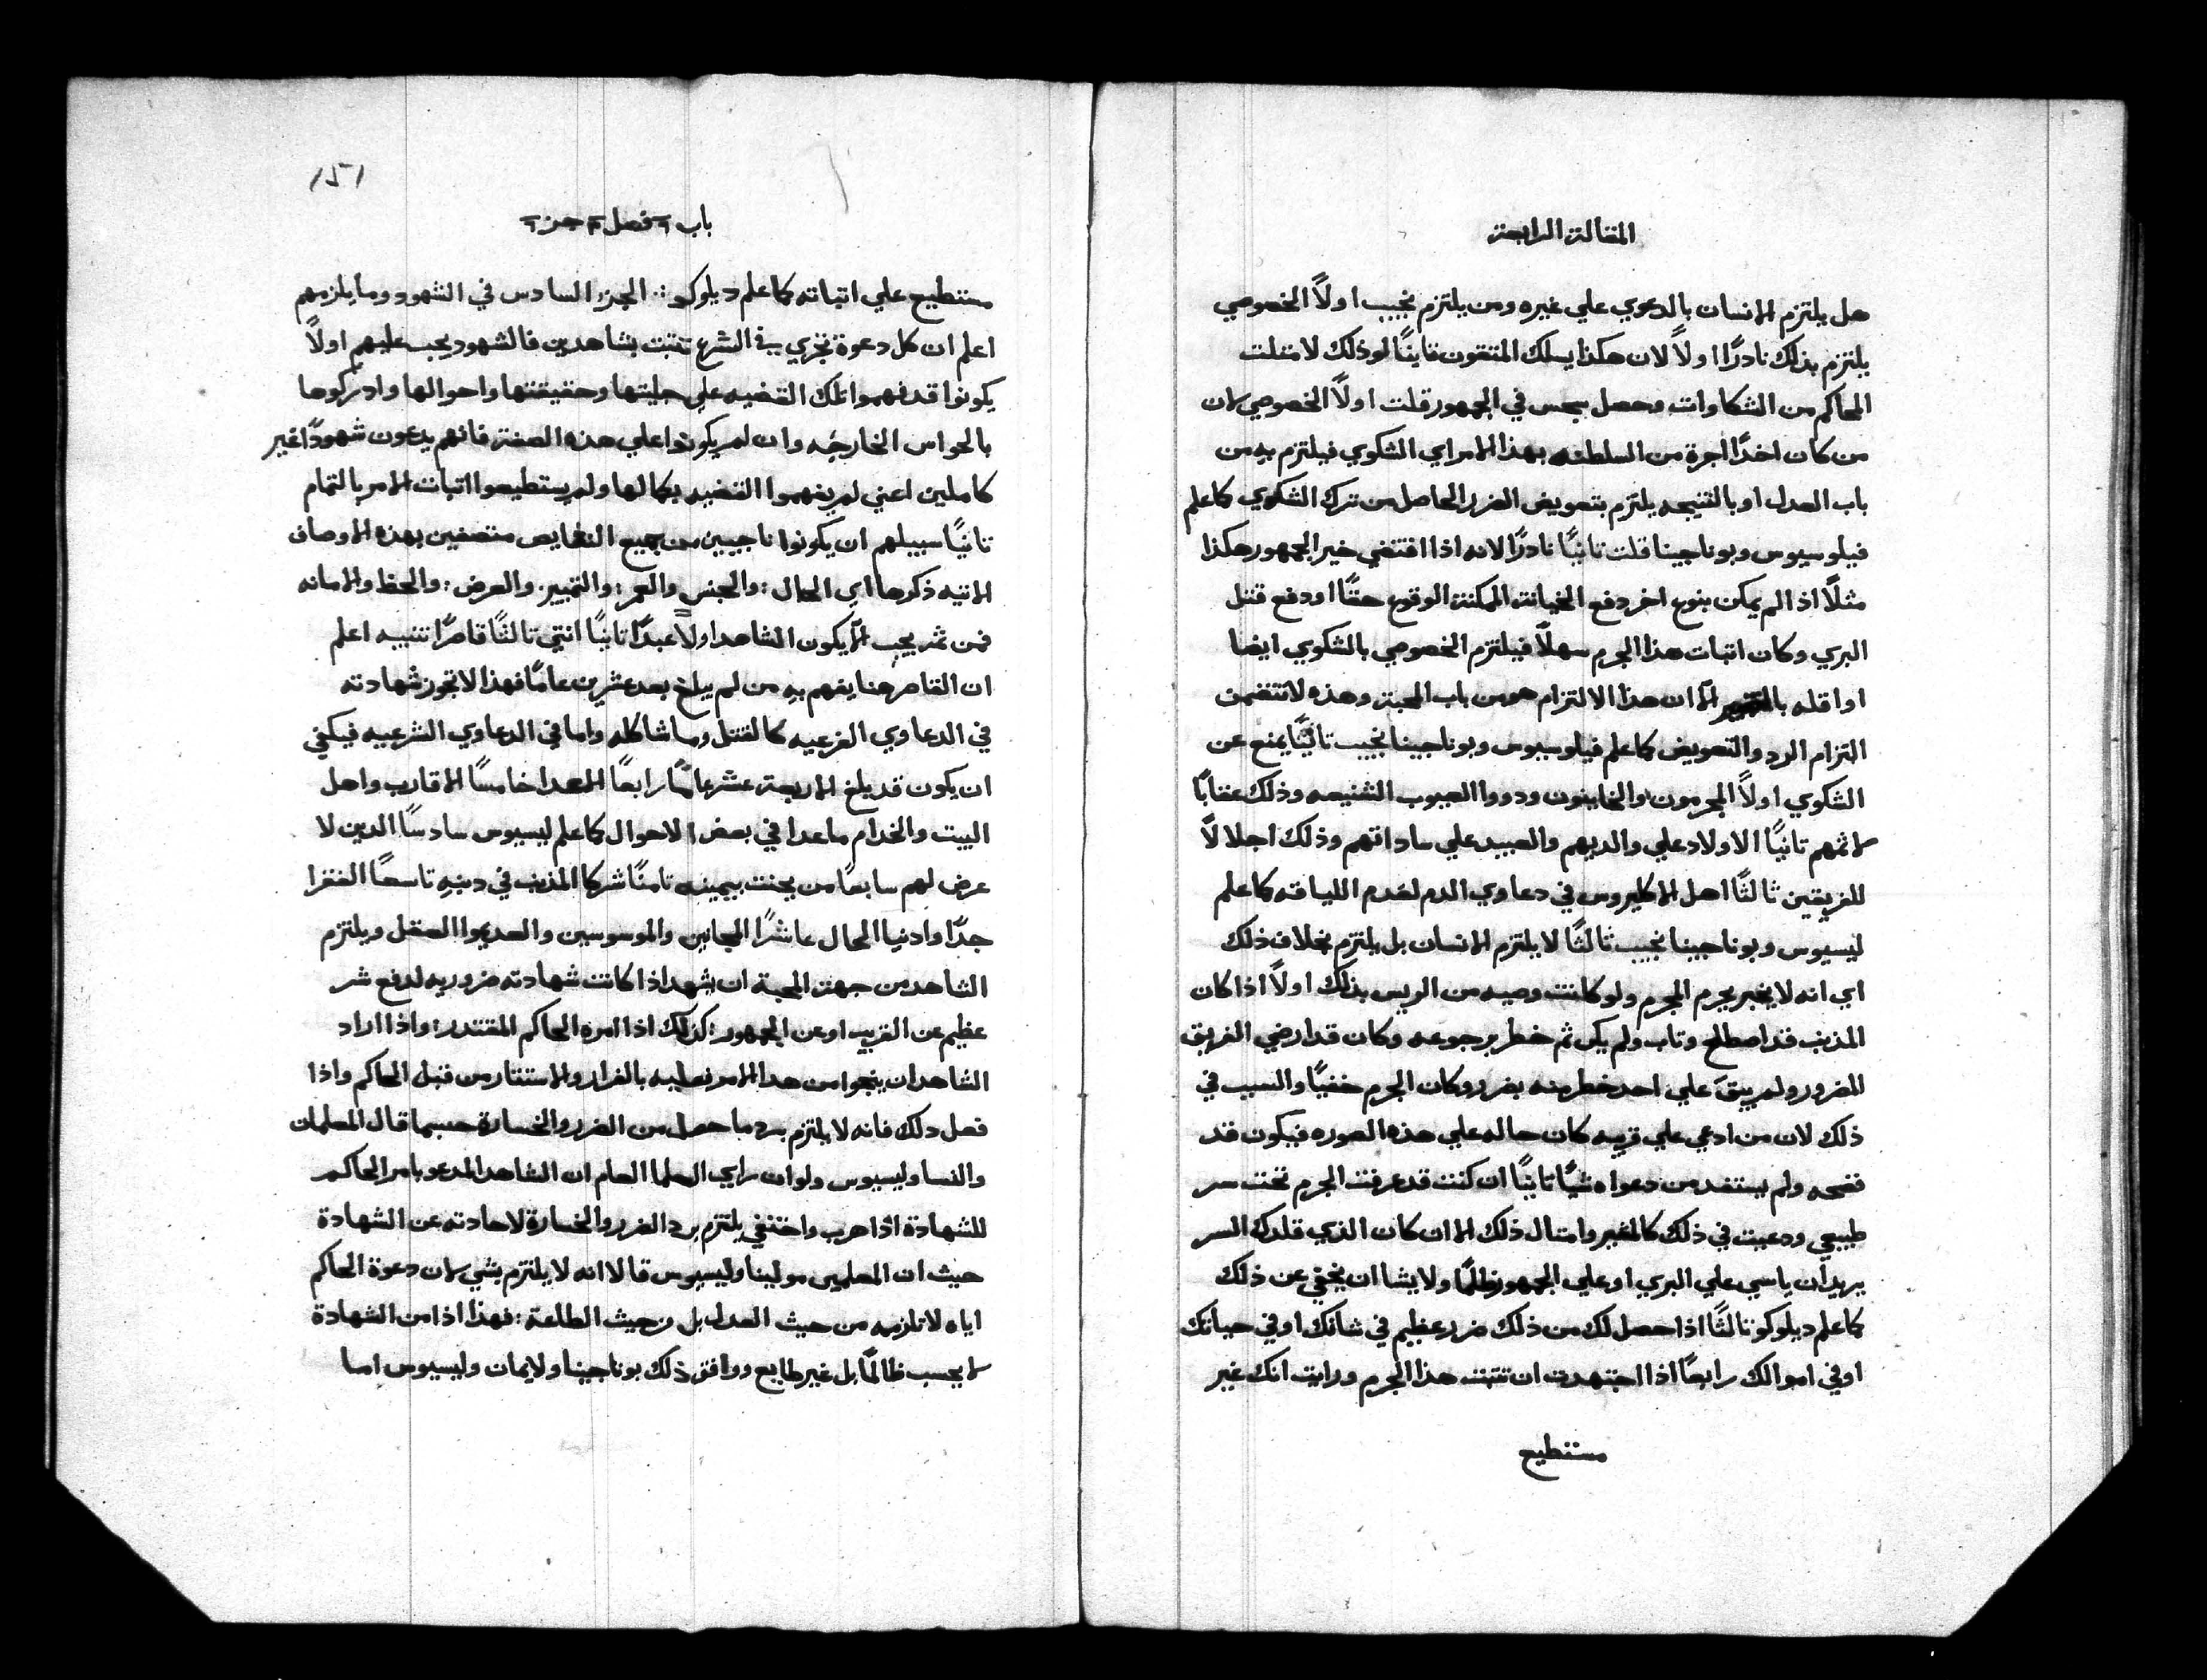 المقالة الرابعة
هل يلتزم الانسان بالدعوي علي غيره ومن يلتزم نجيب اولاً الخصوصي
يلتزم بذلك نادرًا اولاً لان هكذا يسلك المتقون ثانيًا لو ذلك لامتلت
المحاكم من الشكاوات وحصل سجس في الجمهور قلت اولاً الخصوصي لان
من كان اخدًا اجرة من السلطنه بهذا الامر اي الشكوي فيلتزم به من
باب العدل او بالنتيجه يلتزم بتعويض الضرر الحاصل من ترك الشكوي كما علم
فيلوسيوس وبوناجينا قلت ثانيًا نادرًا لانه اذا اقتضي خير الجمهور هكذا
مثلاً اذا لم يمكن بنوع اخر دفع الخيانة الممكنة الوقوع حقًا او دفع قتل
البري وكان اتبات هذا الجرم سهلاً فيلتزم الخصوصي بالشكوي ايضا
او اقله الا ان هذا الالتزام هو من باب المحبة وهذه لا تتضمن
التزام الرد والتعويض كما علم فيلوسيوس وبوناجينا نجيب تانيًا يمنع عن
الشكوي اولاً المجرمون والخاينون ودووا العيوب الشنيعه وذلك عقابًا
لاثمهم تانيًا الاولاد علي والديهم والعبيد علي ساداتهم وذلك اجلالاً
للفريقين ثالثًا اهل الاكليروس في دعاوي الدم لعدم اللياقه كما علم
ليسيوس وبوناجينا نجيب ثالثًا لا يلتزم الانسان بل يلتزم بخلاف ذلك
اي انه لا يخبر بجرم المجرم ولو كانت وصيه من الريس بذلك اولاً اذا كان
المذنب قد اصطلح وتاب ولم يكن ثم خطر برجوعه وكان قد ارضي الفريق
المضرور ولم يبقَ علي احد خطر منه بضرر وكان الجرم خفيًا والسبب في
ذلك لان من ادعي علي قريبه كان حاله علي هذه الصوره فيكون قد
فضحه ولم يستفد من دعواه شيًا تانيًا ان كنت قد عرفت الجرم تحت سر
طبيعي ودعيت في ذلك كالمخبر وامتال ذلك الا ان كان الذي قلدك السر
يريد ان ياسي علي البري او علي الجمهور ظلمًا ولا يشا ان يخفي عن ذلك
كما علم ديلوكو ثالثًا اذا حصل لك من ذلك ضرر عظيم في شانك او في حياتك
او في اموالك رابعًا اذا اجتهدت ان تثبت هذا الجرم ورايت انك غير
مستطيع
١٥١
باب ٦ فصل ٣ جز ٦
مستطيع علي اتباته كما علم ديلوكو ∴ الجزء السادس في الشهود وما يلزمهم
اعلم ان كل دعوة تجري في الشرع تتبت بشاهدين فالشهود يجب عليهم اولاً
يكونوا قد فهموا تلك القضيه علي جليتها وحقيقتها واحوالها وادركوها
بالحواس الخارجيه وان لم يكونوا علي هذه الصفة فانهم يدعون شهودًا غير
كاملين اعني لم يفهموا القضيه بكمالها ولم يستطيعوا اتبات الامر بالتمام
تانيًا سبيلهم ان يكونوا ناجيين من جميع النقايص متصفين بهذه الاوصاف
الاتيه ذكرها اي الحال : والجنس والعمر : والتمييز والعرض : والحظ والامانه
فمن ثم يجب الا يكون الشاهد اولاً عبدًا تانيًا انتي تالتًا قاصرًا تنبيه اعلم
ان القاصر هنا يفهم به من لم يبلغ بعد عشرين عامًا فهذا لا تجوز شهادته
في الدعاوي الفرعيه كالقتل وما شاكله واما في الدعاوي الشرعيه فيكفي
ان يكون قد بلغ الاربعة عشر عامًا رابعًا الاعدا خامسًا الاقارب واهل
البيت والخدام ما عدا في بعض الاحوال كما علم ليسيوس سادسًا الدين لا
عرض لهم سابعًا من يحنت بيمينه تامنًا شركا المذنب في دنبه تاسعًا الفقرا
جدًا وادنيا الحال عاشرًا المجانين والموسوسين والعديموا العقل ويلتزم
الشاهد من جهة المحبة ان يشهد اذا كانت شهادته ضروريه لدفع شر
عظيم عن القريب او عن الجمهور : كذلك اذا امره الحاكم المقتدر : واذا اراد
الشاهد ان ينجوا من هدا الامر فعليه بالفرار والاستتار من قبل الحاكم واذا
فعل دلك فانه لا يلتزم برد ما حصل من الضرر والخسارة حسبما قال المعلمان
والنسا وليسيوس ولو ان راي العلما العام ان الشاهد المدعو بامر الحاكم
للشهادة اذا هرب واختفي يلتزم برد الضرر والخسارة لاحادته عن الشهادة
حيث ان المعلمين مولينا وليسيوس قالا انه لا يلتزم بشي لان دعوة الحاكم
اياه لا تلزمه من حيث العدل بل من حيث الطاعة : فهذا اذا من الشهادة
لا يحسب ظالمًا بل غير طايع ووافق ذلك بوناجينا ولايمان وليسيوس اما